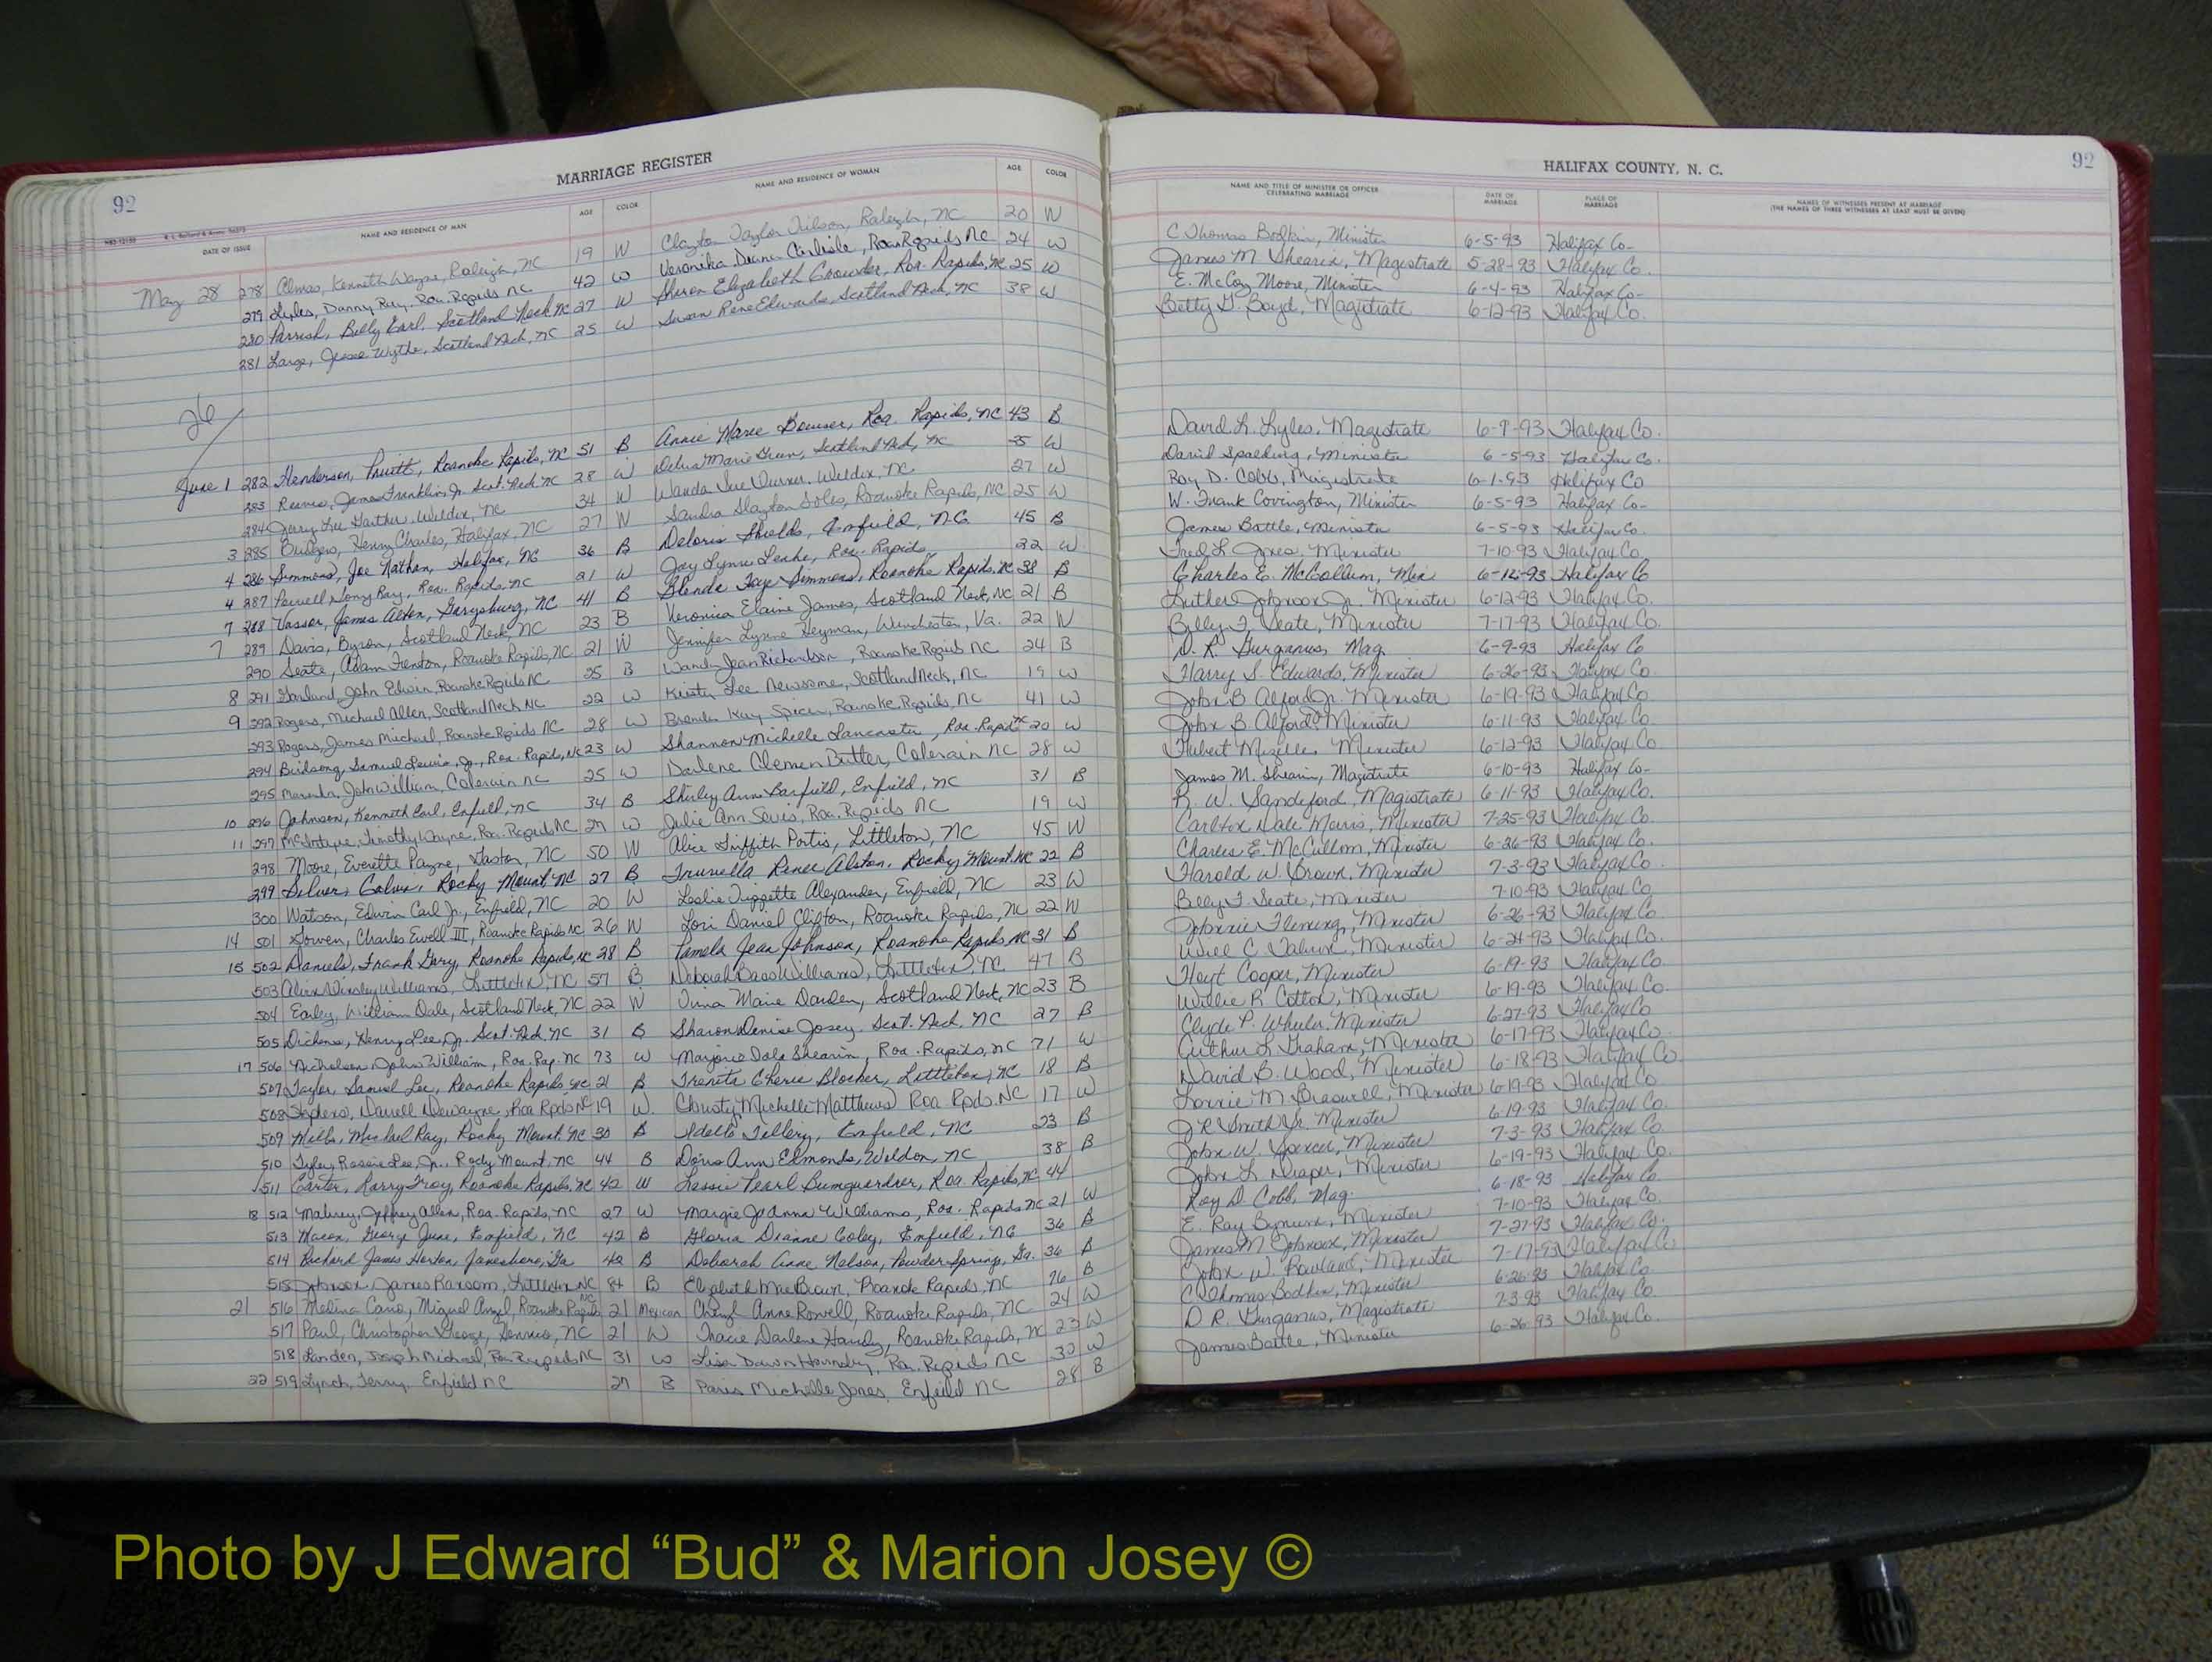 92
MARRIAGE REGISTER
DATE OF ISSUE NAME AND RESIDENCE OF MAN AGE COLOR NAME AND RESIDENCE OF WOMAN AGE COLOR
May 28 278 Kenneth Wayne, Raleigh, NC 19 W Clayton Taylor Raleigh, NC 20 W
279 Lyles, Danny Ray, Roa. Rapids NC 42 W Veronika Diane Carlisle, Roa Rapids NC 24 W
280 Parrish, Billy Earl, Scotland Neck NC 27 W Sharon Elizabeth Crowder, Roa. Rapids, NC 25 W
281 Large, Jesse Wythe, Scotland Neck, NC 25 W Susan Rene Edwards, Scotland Neck, NC 38 W
26
June 1 282 Henderson, Pruitt, Roanoke Rapids, NC 51 B Annie Marie Roa. Rapids, NC 43 B
283 James Franklin, Jr. Scot. Neck NC 28 W Debra Marie Scotland Neck, NC W
284 Jerry Lee Garther, Weldon, NC 34 W Wanda Sue Weldon, NC 27 W
3 285 Henry Charles, Halifax, NC 27 W Sandra Slayton Soles, Roanoke Rapids, NC 25 W
4 286 Simmons, Joe Nathan, Halifax, NC 36 B Deloris Shields, Enfield, NC 45 B
4 287 Ray, Roa. Rapids, NC 21 W Joy Lynne Roa. Rapids 22 W
7 288 Vassor, James Alton, Garysburg, NC 41 B Glenda Faye Simmons, Roanoke Rapids, NC 38 B
7 289 Davis, Byron, Scotland Neck, NC 23 B Veronica Elaine James, Scotland Neck, NC 21 B
290 Seate, Adam Trenton, Roanoke Rapids, NC 21 W Jennifer Lynne Heyman, Winchester, Va. 22 W
8 291 Garland, John Edwin, Roanoke Rapids NC 25 B Jean Richardson, Roanoke Rapids NC 24 B
9 292 Rogers, Michael Allen, Scotland Neck NC 22 W Kristy Lee Newsome, Scotland Neck, NC 19 W
293 Rogers, James Michael, Roanoke Rapids NC 28 W Brenda Kay Roanoke Rapids, NC 41 W
294 Birdsong, Samuel Lewis, Jr., Roa. Rapids, NC 23 W Shannon Michelle Lancaster, Roa. Rapids NC 20 W
295 John William, Colerain NC 25 W Darlene Clemen Butler, Colerain NC 28 W
10 296 Johnson, Kenneth Earl, Enfield, NC 34 B Shirley Ann Barfield, Enfield, NC 31 B
11 297 McIntyre, Timothy Wayne, Roa. Rapids NC W Julie Ann Roa. Rapids NC 19 W
298 Moore, Everette Payne, Gaston, NC 50 W Alice Griffith Portis, Littleton, NC 45 W
299 Silver, Calvin, Rocky Mount, NC 27 B Renee Alston, Rocky Mount, NC 22 B
300 Watson, Edwin Carl Jr., Enfield, NC 20 W Leslie Tippette Alexander, Enfield, NC 23 W
14 501 Gowen, Charles Ewell III, Roanoke Rapids NC 26 W Lori Daniel Clifton, Roanoke Rapids, NC 22 W
15 502 Daniels, Frank Gary, Roanoke Rapids, NC 28 B Pamela Jean Johnson, Roanoke Rapids NC 31 B
503 Williams, Littleton, NC 57 B Deborah Bass Williams, Littleton, NC 47 B
504 Earley, William Dale, Scotland Neck, NC 22 W Tina Marie Darden, Scotland Neck, NC 23 B
505 Dickens, Henry Lee, Jr. Scot. Neck, NC 31 B Sharon Denise Josey, Scot. Neck, NC 27 B
17 506 Nicholson, John William, Roa. Rap. NC 73 W Marjorie Dale Shearin, Roa. Rapids, NC 71 W
507 Taylor, Samuel Lee, Roanoke Rapids, NC 21 B Cherie Blocker, Littleton, NC 18 B
508 Darrell Dewayne, Roa Rpds NC 19 W. Christy Michelle Matthews Roa Rpds. NC 17 W
509 Mills, Michael Ray, Rocky Mount, NC 30 B Tillery, Enfield, NC 23 B
510 Tyler, Lee, Jr., Rocky Mount, NC 44 B Doris Ann Edmonds, Weldon, NC 38 B
511 Carter, Larry Troy, Roanoke Rapids, NC 42 W Lessie Pearl Bumguardner, Roa Rapids, NC 44
18 512 Jeffrey Allen, Roa. Rapids, NC 27 W Margie JoAnna Williams, Roa. Rapids NC 21 W
513 Macon, George June, Enfield, NC 42 B Gloria Dianne Coley, Enfield, NC 36 B
514 Richard James Horton, Jonesboro, Ga 42 B Deborah Anne Nelson, Powder Spring, Ga. 36 B
515 Johnson, James Ransom, Littleton NC 84 B Elizabeth Mae Brown, Roanoke Rapids, NC 76 B
21 516 Medina Cano, Miguel Angel, Roanoke Rapids NC 21 Mexican Cheryl Anne Powell, Roanoke Rapids, NC 24 W
517 Paul, Christopher George, NC 21 W Tracie Darlene Roanoke Rapids, NC 23 W
518 Landen, Joseph Michael, Roa Rapids NC 31 W Lisa Dawn Hornsby, Roa. Rapids NC 32 W
22 519 Lynch, Terry, Enfield NC 27 B Paris Michelle Jones, Enfield NC 28 B
HALIFAX COUNTY, N. C.
92
NAME AND TITLE OF MINISTER OR OFFICER CELEBRATING MARRIAGE DATE OF MARRIAGE PLACE OF MARRIAGE NAMES OF WITNESSES PRESENT AT MARRIAGE (THE NAMES OF THREE WITNESSES AT LEAST MUST BE GIVEN)
C. Thomas Bodkin, Minister 6-5-93 Halifax Co-
James M. Shearin, Magistrate 5-28-93 Halifax Co.
E. McCoy Moore, Minister 6-4-93 Halifax Co-
Betty G. Boyd, Magistrate 6-12-93 Halifax Co.
David L. Lyles, Magistrate 93 Halifax Co.
David Spalding, Minister 6-5-93 Halifax Co.
Roy D. Cobb, Magistrate 6-1-93 Halifax Co
W. Frank Covington, Minister 6-5-93 Halifax Co-
James Battle, Minister 6-5-93 Halifax Co.
Fred L. Jones, Minister 7-10-93 Halifax Co.
Charles E. McCollum, Min 6-12-93 Halifax Co
Luther Johnson Jr. Minister 6-12-93 Halifax Co.
Billy F. Seate, Minister 7-17-93 Halifax Co.
D. R. Gurganus, Mag. 6-9-93 Halifax Co
Harry S. Edwards, Minister 6-26-93 Halifax Co.
John B Alford Jr. Minister 6-19-93 Halifax Co
John B Alford Minister 6-11-93 Halifax Co.
Hubert Mizelle, Minister 6-12-93 Halifax Co
James M. Shearin, Magistrate 6-10-93 Halifax Co-
R. W. Sandeford, Magistrate 6-11-93 Halifax Co.
Carlton Dale Morris, Minister 7-25-93 Halifax Co.
Charles E. McCullom, Minister 6-26-93 Halifax Co.
Harold W. Brown, Minister 7-3-93 Halifax Co
Billy F. Seate, Minister 7-10-93 Halifax Co,
Johnnie Fleming, Minister 6-26-93 Halifax Co
Will C. Minister 6-24-93 Halifax Co.
Hoyt Cooper, Minister 6-19-93 Halifax Co.
Willie R Cotton, Minister 6-19-93 Halifax Co.
Clyde P. Wheeler, Minister 6-27-93 Halifax Co
Arthur L Graham, Minister 6-17-93 Halifax Co.
David B. Wood, Minister 6-18-93 Halifax Co
Lonnie M. Braswell, Minister 6-19-93 Halifax Co
J R Smith Jr. Minister 6-19-93 Halifax Co.
John W. Spencer, Minister 7-3-93 Halifax Co.
John L. Draper, Minister 6-19-93 Halifax Co.
Roy D Cobb, Mag. 6-18-93 Halifax Co
E. Ray Bynum, Minister 7-10-93 Halifax Co.
James M Johnson, Minister 7-27-93 Halifax Co.
John W. Rowland, Minister 7-17-93 Halifax Co
C Thomas Bodkin, Minister 6-26-93 Halifax Co.
D R. Gurganus, Magistrate 7-3-93 Halifax Co.
James Battle, Minister 6-26-93 Halifax Co.
Photo by J Edward “Bud” & Marion Josey ©